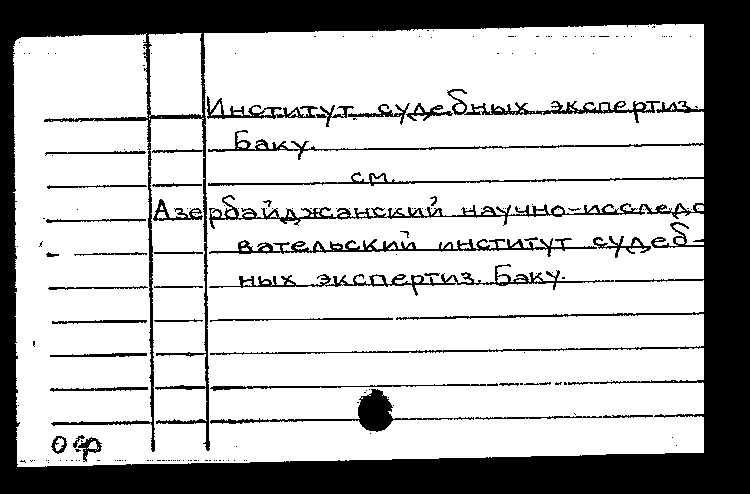 Институт судебных экспертиз.
Баку.
см.
Азербайджанский научно-исследо
вательский институт судеб-
ных экспертиз. Баку.